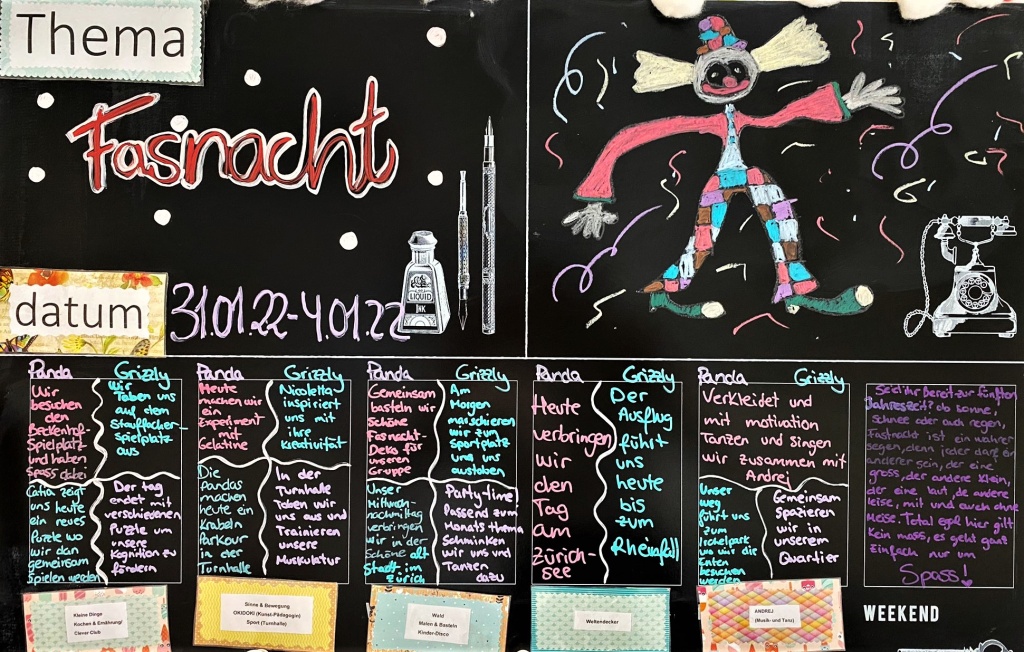 Thema
Fasnacht
LIQUID
INK
datum
31.01.22-4.01.22
Panda
Grizzly
Wir
besuchen
den
Spielplatz
und haben
Spass dabei
Wir
Toben uns
auf dem
Stauffacher-
Spielplatz
aus
Catia zeigt
uns heute
ein neues
Puzzle wo
wir dann
gemeinsam
Spielen werden
Der tag
endet mit
verschiedenen
Puzzle um
unsere
Kognition zu
fördern
Panda
Grizzly
Heute
machen wir
ein
Experiment
mit
Gelatine
Nicoletta
inspiriert
uns mit
ihre
Kreativität
Die
Pandas
machen
heute ein
Krabeln
Parkour
in der
Turnhalle
In der
Turnhalle
Toben wir
uns aus und
Trainieren
unsere
Muskulatur
Panda
Grizzly
Gemeinsam
basteln wir
schöne
Fasnacht-
Deko für
unseren
Gruppe
Am
Morgen
marschieren
wir zum
Sportplatz
und uns
austoben
Unser
Mittwoch-
nachmittag
verbringen
wir in der
Schöne alt
Stadt im
Zürich
Party-time!
Passend zum
Monats thema
Schminken
wir uns und
Tanzen
dazu
Panda
Grizzly
Heute
verbringen
wir
den
Tag
am
Zürich-
see
Der
Ausflug
führt
uns
heute
bis
zum
Rheinfall
Panda
Grizzly
Verkleidet und
mit motivation
Tanzen und Singen
wir zusammen mit
Andrej
Unser
weg
führt uns
zum
Irchelpark
wo wir die
Enten
besuchen
werden
Gemeinsam
Spazieren
wir in
unserem
Quartier
Seid ihr Bereit zur fünften
Jahreszeit? ob sonne,
Schnee oder auch regen,
Fastnacht ist ein wahrer
segen, denn jeder darf ein
anderer sein, der eine
gross, der andere klein,
der eine laut, de andere
leise, mit und auch ohne
Messe. Total egal hier gilt
Kein mass, es geht ganz
Einfach nur um
Spass!
Kleine Dinge
Kochen & Ernährung/
Clever Club
Sinne & Bewegung
OKIDOKI (Kunst-Pädagogie)
Sport (Turnhalle)
Wald
Malen & Basteln
Kinder-Disco
Weltendecker
ANDREJ
(Musik- und Tanz)
WEEKEND